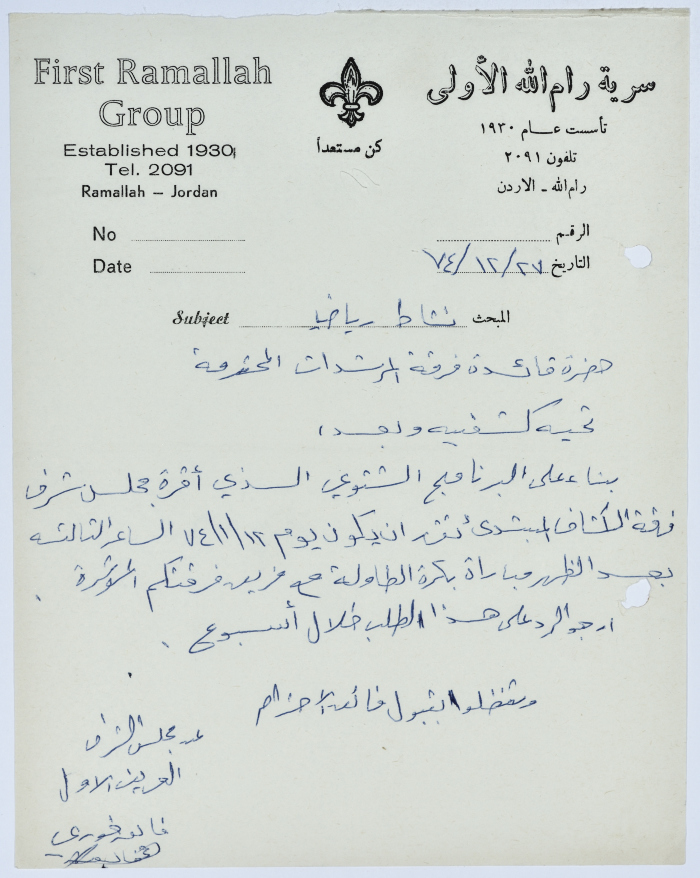 First Ramallah
Group
Established 1930
Tel. 2091
Ramallah – Jordan
كن مستعداً
سرية رام الله الأولى
تأسست عام ١٩٣٠
تلفون ٢٠٩١
رام الله - الاردن
No
Date
الرقم
التاريخ ٧٤/١٢/٢٧
Subject نشاط رياضي المبحث
حضرة قائدة فرقة المرشدات المحترمة
تحية كشفية وبعد،
بناء على البرنامج الشتوي الذي أقرة مجلس شرف
فرقة الكشاف المبتدئ تقرر ان يكون يوم ٧٤/١/١٢ الساعة الثالثة
بعد الظهر مباراة بكرة الطاولة مع فريق فرقتكم الموقرة .
ارجو الرد على هذا الطلب خلال أسبوع .
وتفضلوا بقبول فائق الاحترام
عن مجلس الشرف
العريف الاول
خوري